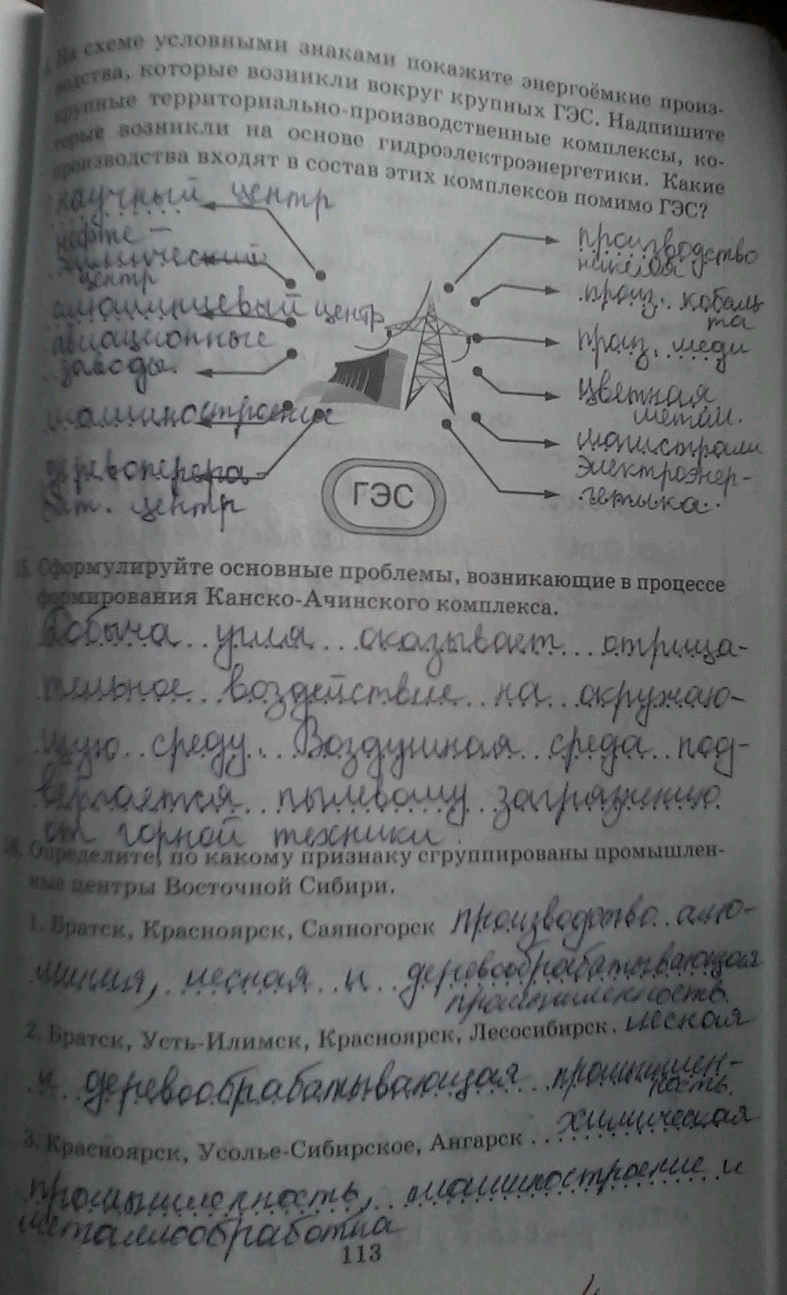 На схеме условными знаками покажите энергоёмкие произ-
водства, которые возникли вокруг крупных ГЭС. Надпишите
крупные территориально-производственные комплексы, ко-
торые возникли на основе гидроэлектроэнергетики. Какие
производства входят в состав этих комплексов помимо ГЭС?
научный центр
нефте-
химический
центр
алюминиевый центр
авиационные
заводы.
машиностроение
деревоперера-
бат. центр
производство
никеля
произ. кобаль
та
произ. меди
цветная
метал.
магистрали
электроэнер-
гетика.
ГЭС
15. Сформулируйте основные проблемы, возникающие в процессе
формирования Канско-Ачинского комплекса.
Добыча угля оказывает отрица-
тельное воздействие на окружаю-
щую среду. Воздушная среда под-
вергается пылевому загрязнению
от горной техники.
16. Определите, по какому признаку сгруппированы промышлен-
ные центры Восточной Сибири.
1. Братск, Красноярск, Саяногорск производство алю-
миния, лесная и деревообрабатывающая
промышленность.
2. Братск, Усть-Илимск, Красноярск, Лесосибирск. лесная
и деревообрабатывающая промышлен-
ность.
3. Красноярск, Усолье-Сибирское, Ангарск . . химическая
промышленность, машиностроение и
металлообработка
113